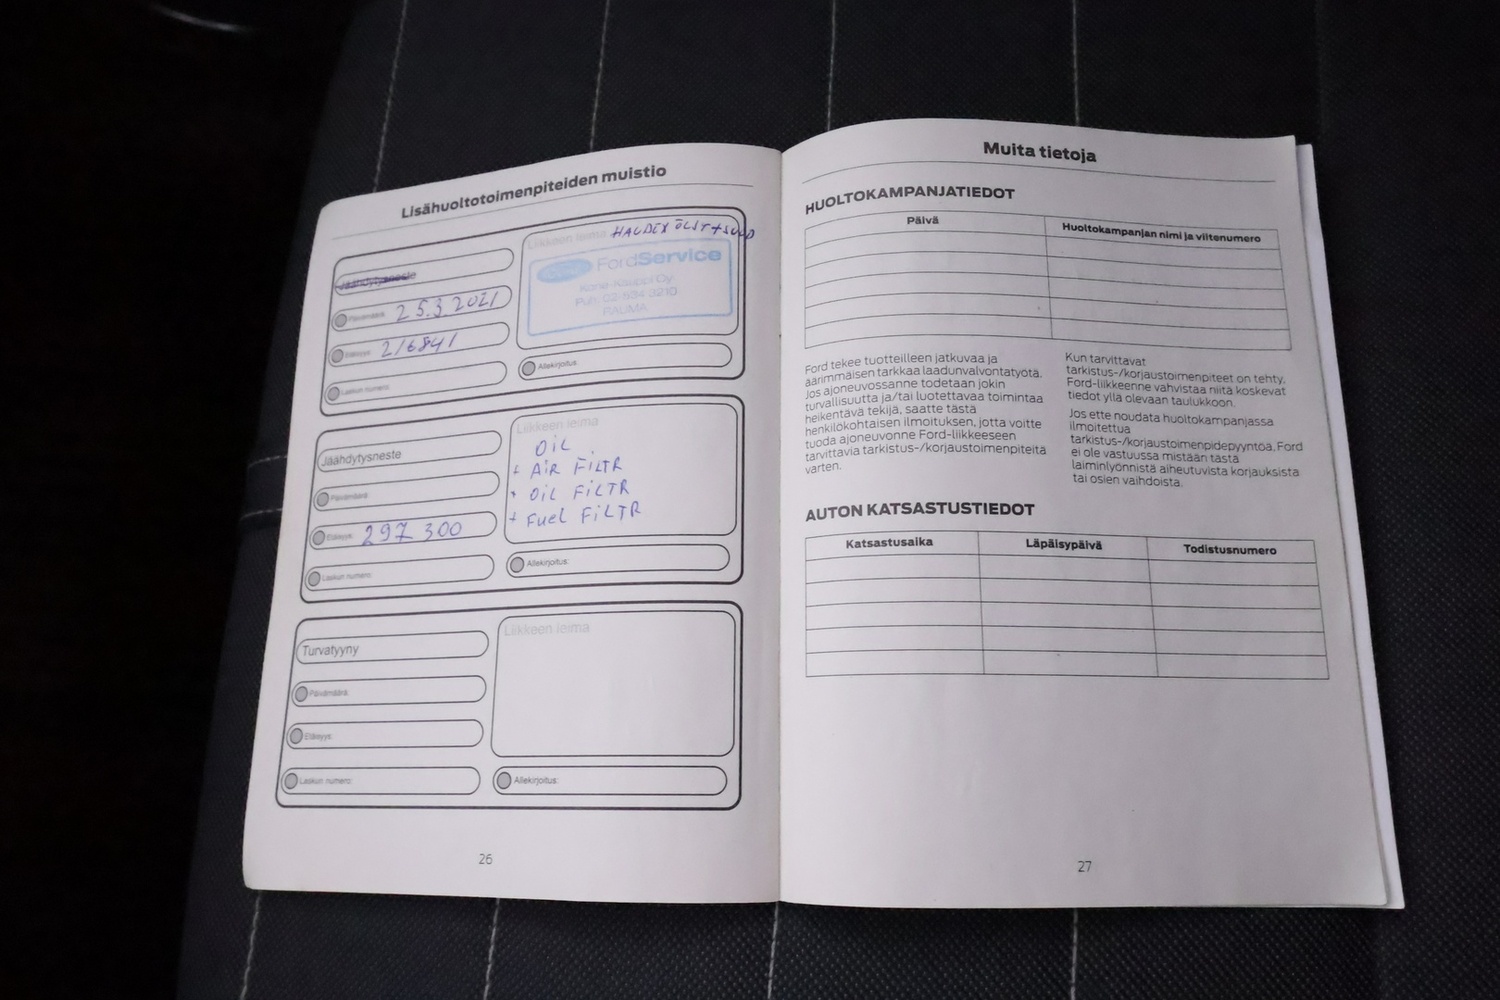 Lisähuoltotoimenpiteiden muistio
Jäähdytysneste
Päivämäärä: 25.3 2021
Etäisyys: 216841
Laskun numero:
Liikkeen leima HALDEX ÖLJT +
FordService
Puh. 02-534 3210
RAUMA
Allekirjoitus:
Jäähdytysneste
Päivämäärä:
Etäisyys: 297 300
Laskun numero:
Liikkeen leima
OIL
+ AIR FILTR
+ OIL FILTR
+ FUEL FILTR
Allekirjoitus:
Turvatyyny
Päivämäärä:
Etäisyys:
Laskun numero:
Liikkeen leima
Allekirjoitus:
26
Muita tietoja
HUOLTOKAMPANJATIEDOT
Päivä
Huoltokampanjan nimi ja viitenumero
Ford tekee tuotteilleen jatkuvaa ja
äärimmäisen tarkkaa laadunvalvontatyötä.
Jos ajoneuvossanne todetaan jokin
turvallisuutta ja/tai luotettavaa toimintaa
heikentävä tekijä, saatte tästä
henkilökohtaisen ilmoituksen, jotta voitte
tuoda ajoneuvonne Ford-liikkeeseen
tarvittavia tarkistus-/korjaustoimenpiteitä
varten.
Kun tarvittavat
tarkistus-/korjaustoimenpiteet on tehty,
Ford-liikkeenne vahvistaa niitä koskevat
tiedot yllä olevaan taulukkoon.
Jos ette noudata huoltokampanjassa
ilmoitettua
tarkistus-/korjaustoimenpidepyyntöä, Ford
ei ole vastuussa mistään tästä
laiminlyönnistä aiheutuvista korjauksista
tai osien vaihdoista.
AUTON KATSASTUSTIEDOT
Katsastusaika
Läpäisypäivä
Todistusnumero
27